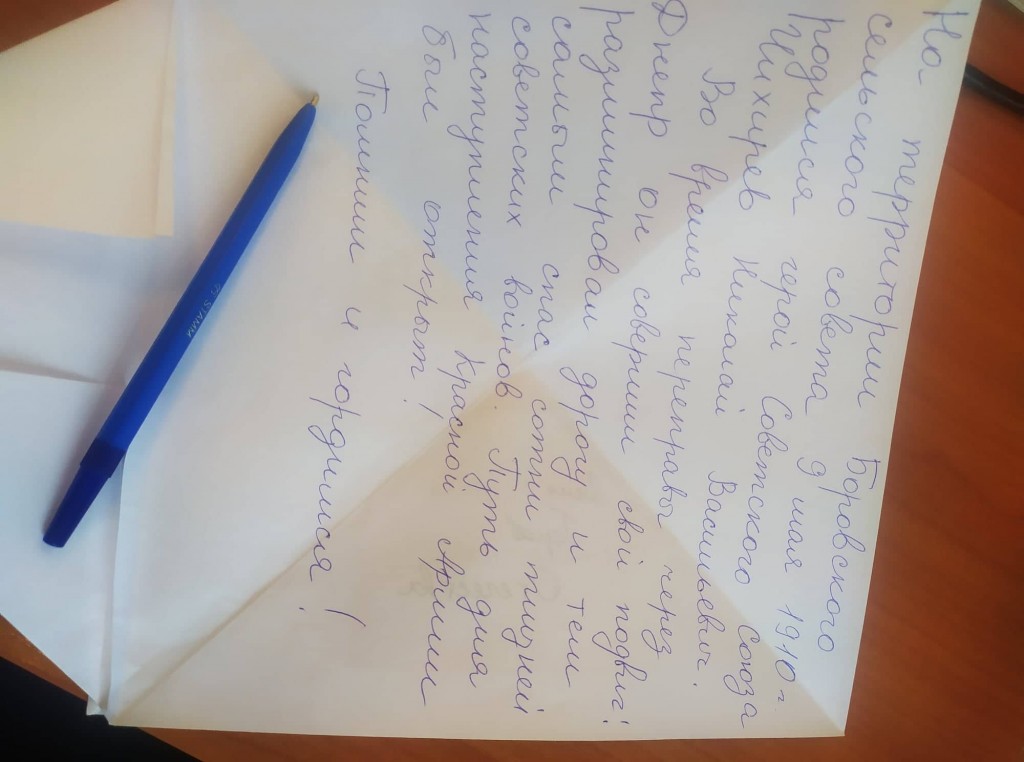 На территории Боровского
сельского совета 9 мая 1910 г.
родился герой Советского Союза
Чихирев Николай Васильевич.
Во время переправы через
Днепр он совершил свой подвиг:
разминировал дорогу и тем
самым спас сотни жизней
советских войнов. Путь для
наступления Красной Армии
был открыт!
Помним и гордимся!
STAMM